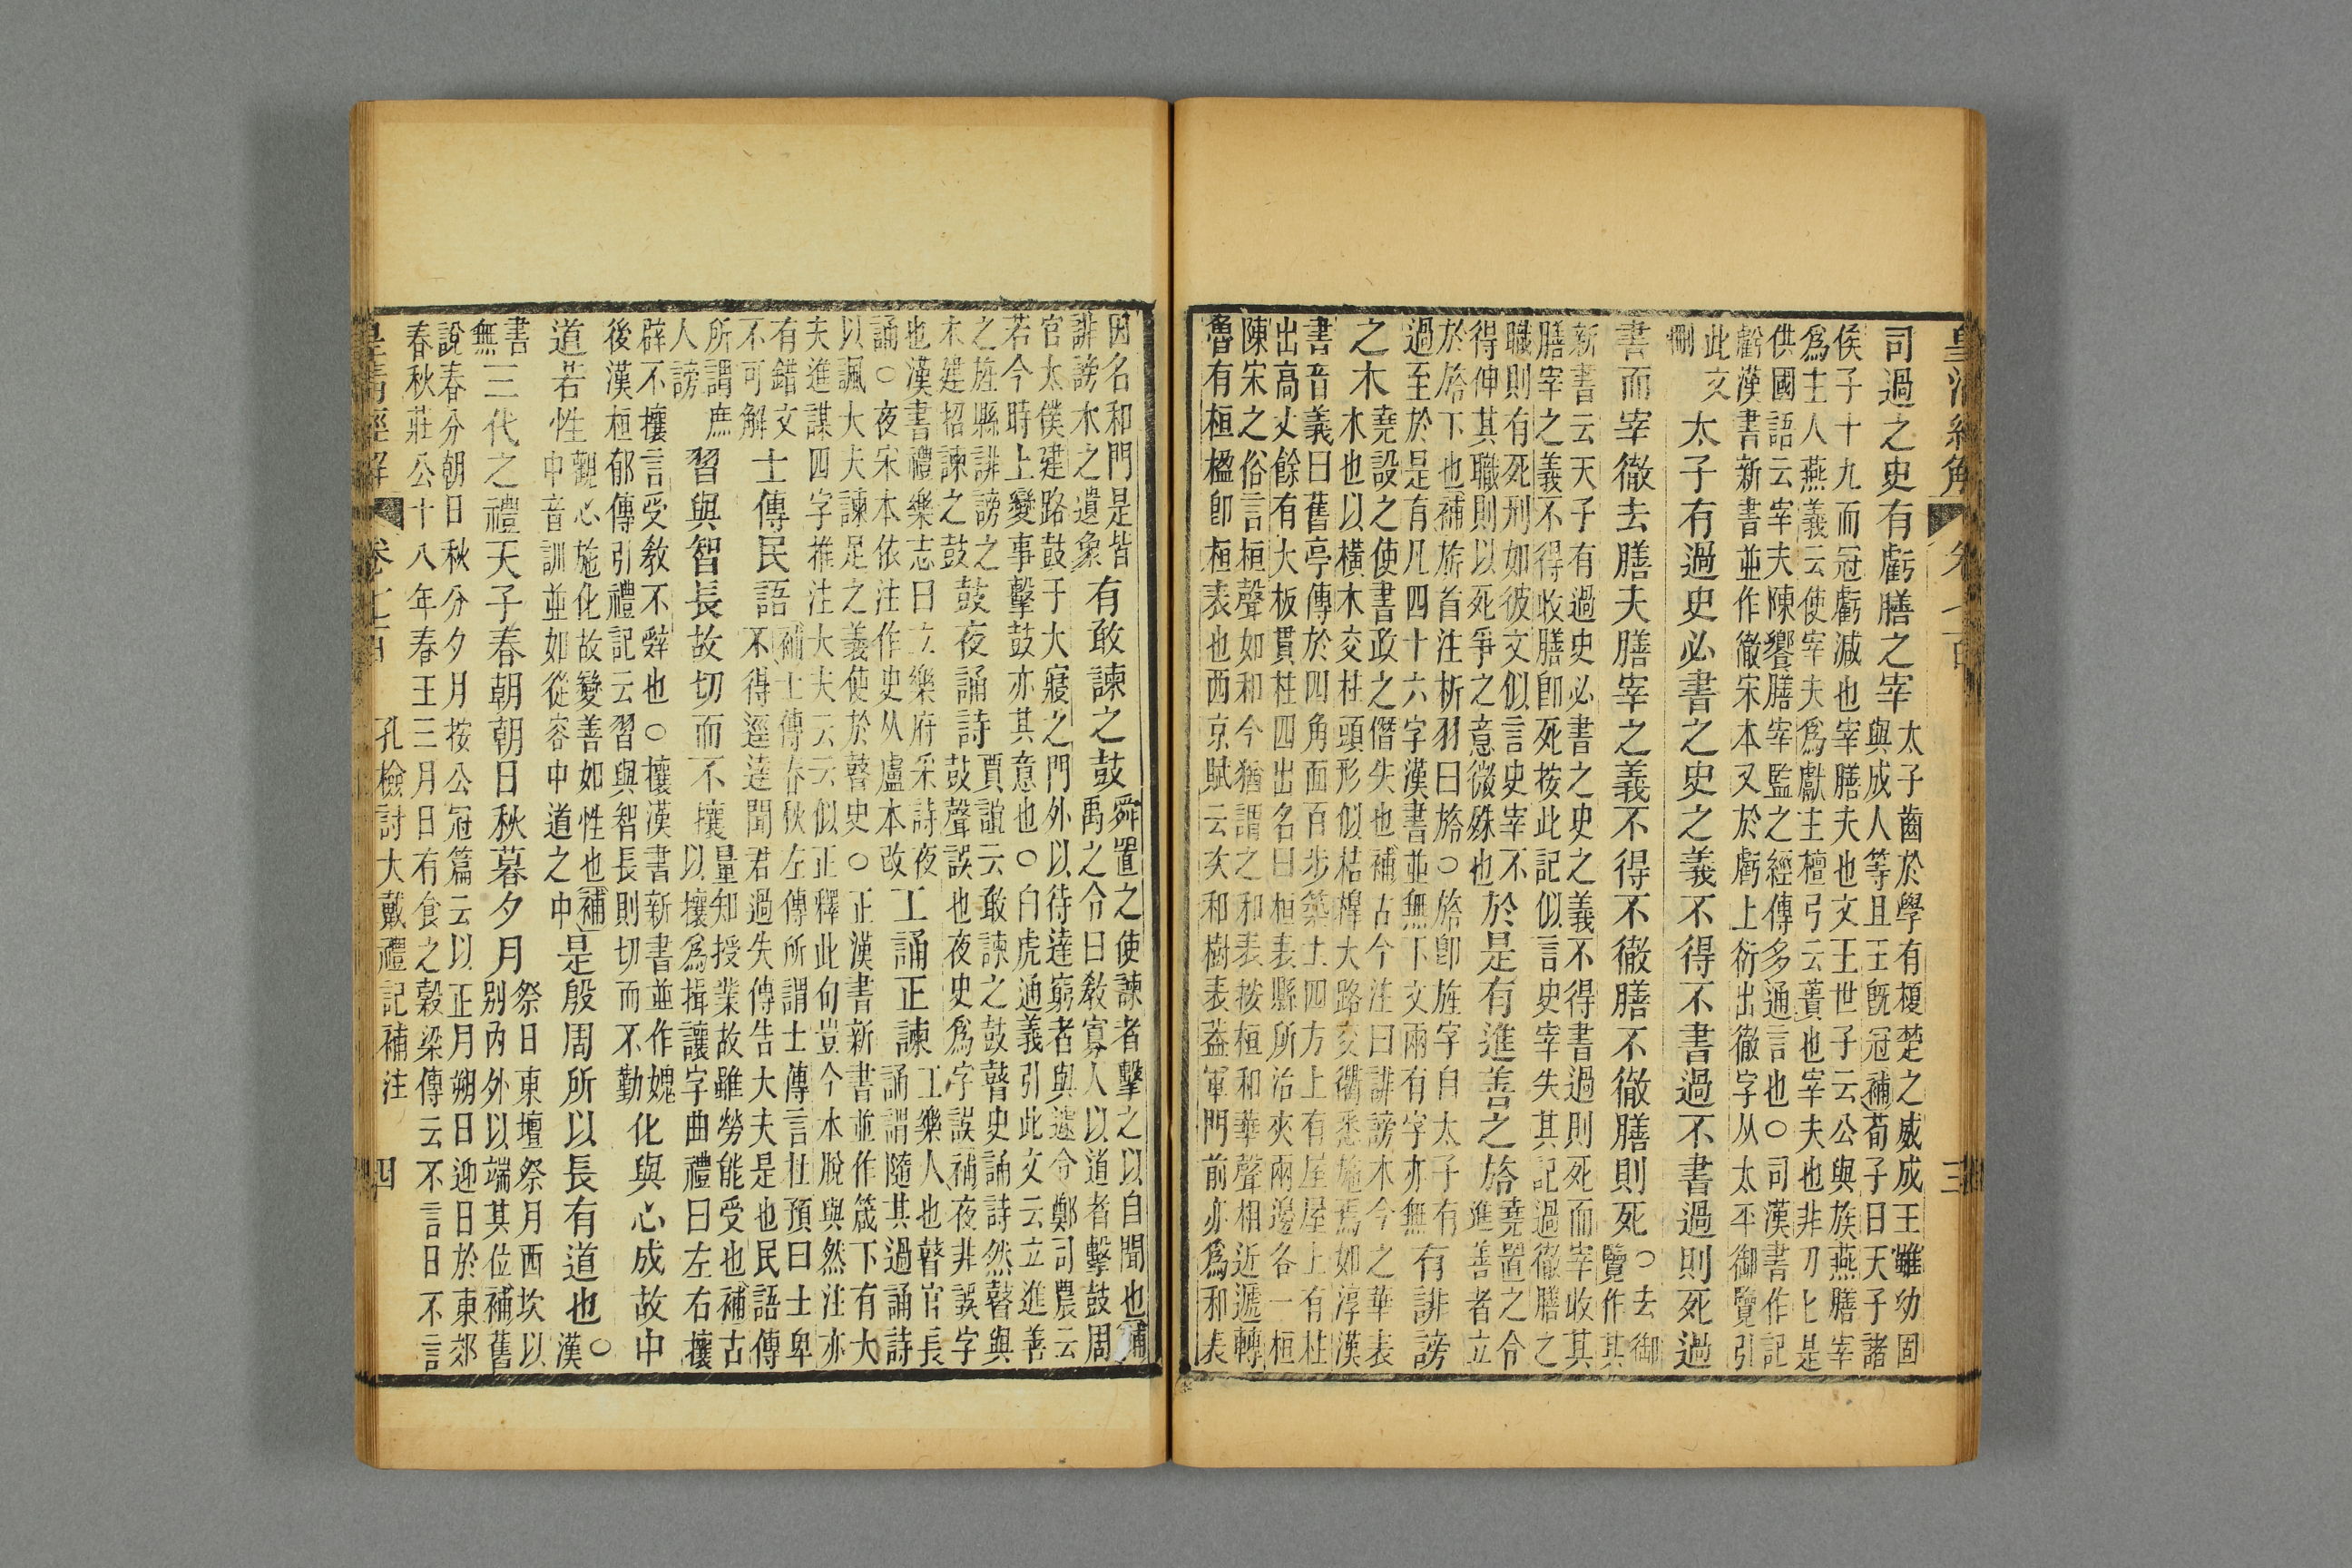 皇清經解 卷七百 三
司過之史有虧膳之宰
太子齒於學有榎楚之威成王雖幼固
與成人等且王旣冠補荀子曰天子諸
侯子十九而冠虧減也宰膳夫也文王世子云公與族燕膳宰
爲主人燕義云使宰夫爲獻主檀弓云蕢也宰夫也非刀匕是
供國語云宰夫陳饗膳宰監之經傳多通言也○司漢書作記
虧漢書新書並作徹宋本又於虧上衍出徹字从太平御覽引
此文
刪
太子有過史必書之史之義不得不書過不書過則死過
書而宰徹去膳夫膳宰之義不得不徹膳不徹膳則死
○去御
覽作其
新書云天子有過史必書之史之義不得書過則死而宰收其
膳宰之義不得收膳卽死按此記似言史宰失其記過徹膳之
職則有死刑如彼文似言史宰不
得伸其職則以死爭之意微殊也
於是有進善之旍
堯置之令
進善者立
於旍下也補旍首注析羽曰旍○旍卽旌字自太子有
過至於是有凡四十六字漢書並無下文兩有字亦無
有誹謗
之木
堯設之使書政之僭失也補古今注曰誹謗木今之華表
木也以橫木交柱頭形似桔橰大路交衢悉施焉如淳漢
書音義曰舊亭傳於四角面百步築土四方上有屋屋上有柱
出高丈餘有大板貫柱四出名曰桓表縣所治夾兩邊各一桓
陳宋之俗言桓聲如和今猶謂之和表按桓和華聲相近遞轉
魯有桓楹卽桓表也西京賦云交和樹表葢軍門前亦爲和表
因名和門是皆
誹謗木之遺象
有敢諫之鼓
舜置之使諫者擊之以自聞也補
禹之令曰敎寡人以道者擊鼓周
官太僕建路鼓于大寢之門外以待達窮者與遽令鄭司農云
若今時上變事擊鼓亦其意也○白虎通義引此文云立進善
之旌縣誹謗之
木建招諫之鼓
鼓夜誦詩
賈誼云敢諫之鼓瞽史誦詩然瞽與
鼓聲誤也夜史爲字誤補夜非誤字
也漢書禮樂志曰立樂府采詩夜
誦○夜宋本依注作史从盧本改
工誦正諫
工樂人也瞽官長
誦謂隨其過誦詩
以諷大夫諫足之義使於瞽史○正漢書新書並作箴下有大
夫進謀四字推注大夫云云似正釋此句豈今本脫與然注亦
有錯文
不可解
士傳民語
補士傳春秋左傳所謂士傳言杜預曰士卑
不得逕達聞君過失傳告大夫是也民語傳
所謂庶
人謗
習與智長故切而不攘
量知授業故雖勞能受也補古
以攘爲揖讓字曲禮曰左右攘
辟不攘言受敎不辭也○攘漢書新書並作媿
後漢桓郁傳引禮記云習與智長則切而不勤
化與心成故中
道若性
觀心施化故變善如性也補
中音訓並如從容中道之中
是殷周所以長有道也
○漢
書
無
三代之禮天子春朝朝日秋暮夕月
祭日東壇祭月西坎以
別內外以端其位補舊
說春分朝日秋分夕月按公冠篇云以正月朔日迎日於東郊
春秋莊公十八年春王三月日有食之穀梁傳云不言日不言
皇清經解 卷七百 孔檢討大戴禮記補注 四